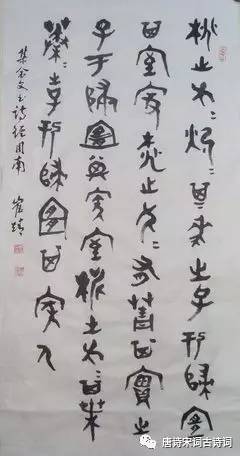 桃之夭〻灼〻其華之子于歸宜
其室家桃之夭〻有蕡其實之
子于歸宜其家室桃之夭〻其葉
蓁〻之子于歸宜其家人
集金文书诗经周南
唐诗宋词古诗词